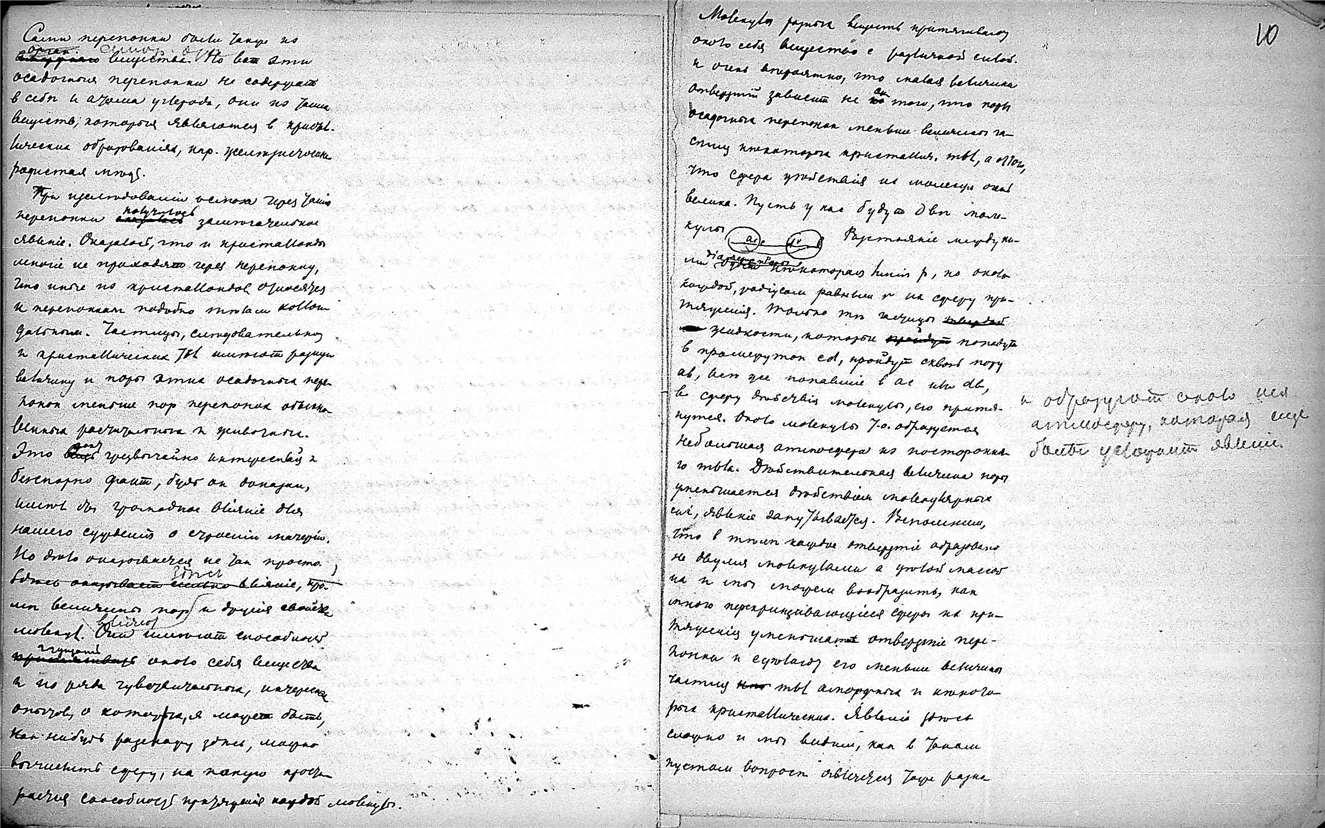 Сами перепонки были также из
орган. аморф.
вещества. Но вот эти
осадочныя перепонки не содержат
в себѣ и атома углерода, они из таких
веществ, которыя являются в кристал-
лических образованіях, нар. желѣзисто-
При изслѣдованіи осмоза через такія
перепонки получилось замѣчательное
явленіе. Оказалось, что и кристаллоиды
многіе не проходят через перепонку,
что иные из кристаллоидов относятся
к перепонкам подобно тѣлам коллои-
дальным. Частицы, слѣдовательно
и кристаллических тѣл имѣют разную
величину и поры этих осадочных пере-
понок меньше пор перепонок обыкно-
венных растительных и животных.
Это чрезвычайно интересный и
безспорно факт, будь он доказан,
имѣл бы громадное вліяніе для
нашего сужденія о строеніи матеріи.
Но дѣло оказывается не так просто,
здѣсь
вліяніе, кро-
мѣ величины пор и другія свойства
молекул. Они имѣют способность
сгущать
около себя вещества
и из ряда чувствительных, интересных
опытов, о которых я может быть,
как нибудь разскажу здѣсь, можно
вычислить сферу, на какую простi-
рается способность притяженія каждой молекулы.
10
Молекулы разных веществ притягивают
около себя вещество с различной силой
и очень вѣроятно, что малая величина
отверстій зависит не от того, что поры
осадочных перепонок меньше величины ча-
стиц нѣкоторых кристаллич. тѣл, а от того,
что сфера удѣйствія их молекул очень
велика. Пусть у нас будут двѣ моле-
кулы
Разстояніе между ни-
ми нѣкоторая линія р, но около
каждой, радіусом равным r их сферу при-
тяженія. Только тѣ частицы
жидкости, которыя попадут
в промежуток cd, пройдут сквозь пору
ab, всѣ же попавшіе в ac или db,
в сферу дѣйствія молекулы, ею притя-
нутся. Около молекулы т.о. образуется
небольшая атмосфера из постороння-
го тѣла. Дѣйствительная величина поры
уменьшается дѣйствіем молекулярных
сил, явленіе запутывается. Вспомним,
что в тѣлах каждое отверстіе образовано
не двумя молекулами а цѣлой массой
их и мы можем вообразить, как
много перекрещивающіеся сферы их при-
тяженія уменьшают отверстіе пере-
понки и сдѣлают его меньше величины
частиц тѣл аморфных и нѣкото-
рых кристаллических. Явленіе здѣсь
сложно и мы видим, как в таком
пустом вопросѣ является тоже разно
и образуют около нея
атмосферу, которая еще
болѣе усложнит явленіе.